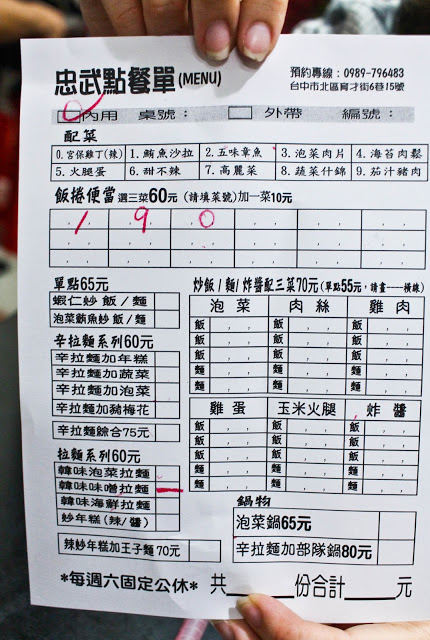 忠武點餐單(MENU)
預約專線：0989-796483
台中市北區育才街6巷15號
內用 桌號： 外帶 編號：
配菜
0.宮保雞丁(辣) 1.鮪魚沙拉 2.五味章魚 3.泡菜肉片 4.海苔肉鬆
5.火腿蛋 6.甜不辣 7.高麗菜 8.蔬菜什錦 9.茄汁豬肉
飯捲便當選三菜60元 (請填菜號)加一菜10元
1 9 0
單點65元
蝦仁炒飯/麵
泡菜鮪魚炒飯/麵
辛拉麵系列60元
辛拉麵加年糕
辛拉麵加蔬菜
辛拉麵加泡菜
辛拉麵加豬梅花
辛拉麵綜合75元
拉麵系列60元
韓味泡菜拉麵
韓味味噌拉麵
韓味海鮮拉麵
炒年糕(辣/醬)
辣炒年糕加王子麵70元
炒飯/麵/炸醬配三菜70元(單點55元,請畫----橫線)
泡菜 肉絲 雞肉
飯 飯 飯
飯 飯 飯
飯 飯 飯
麵 麵 麵
麵 麵 麵
雞蛋 玉米火腿 炸醬
飯 飯 飯
飯 飯 飯
飯 飯 飯
麵 麵 麵
麵 麵 麵
鍋物
泡菜鍋65元
辛拉麵加部隊鍋80元
*每週六固定公休* 共____份合計____元